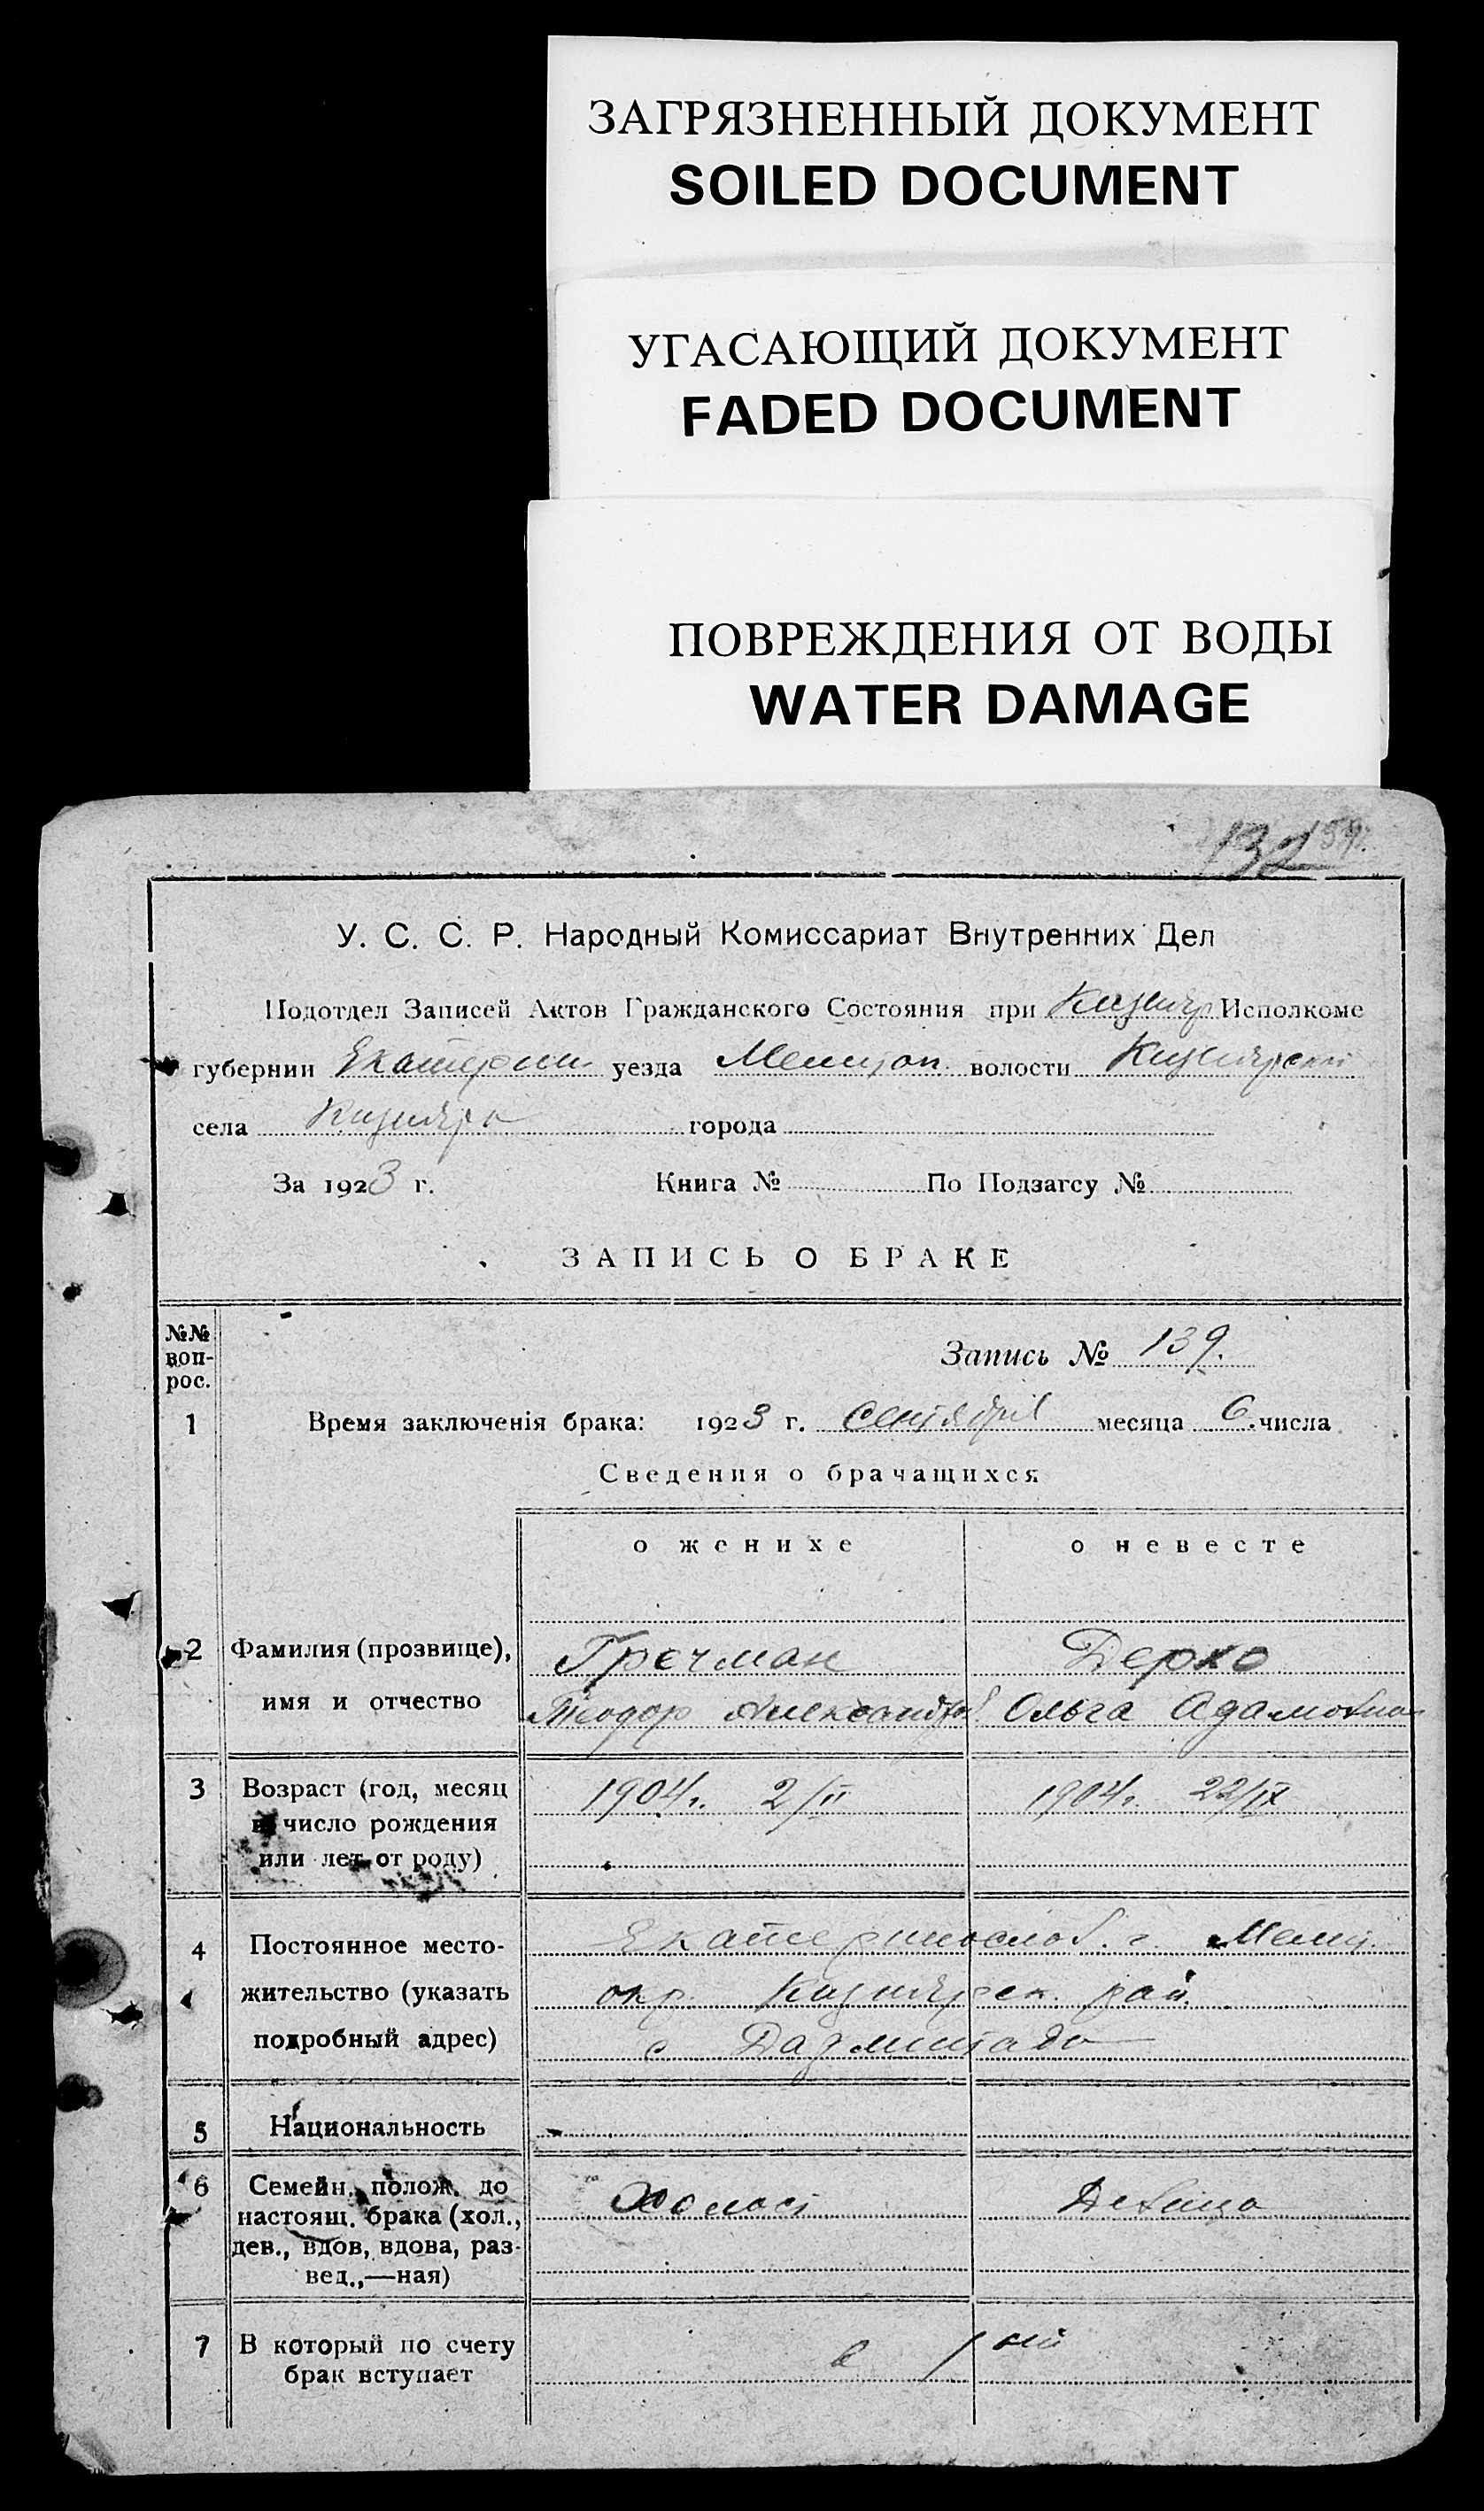 ЗАГРЯЗНЕННЫЙ ДОКУМЕНТ
SOILED DOCUMENT
УГАСАЮЩИЙ ДОКУМЕНТ
FADED DOCUMENT
ПОВРЕЖДЕНИЯ ОТ ВОДЫ
WATER DAMAGE
132
У. С. С. Р. Народный Комиссариат Внутренних Дел
Подотдел Записей Актов Гражданского Состояния при Кизияр Исполкоме
губернии Екатерин. уезда Мелитоп. волости Кизиярской
села Кизияра города
За 1923 г. Книга № По Подзагсу №
ЗАПИСЬ О БРАКЕ
№№ воп-рос.
Запись № 139.
1 Время заключенія брака: 1923 г. Сентября месяца 6. числа
Сведения о брачащихся
о женихе о невесте
2 Фамилия (прозвище), Гречман Дерхо
имя и отчество Теодор Александров Ольга Адамовна
3 Возраст (год, месяц 1904г. 2/II 1904г. 22/IX
и число рождения
или лет от роду)
4 Постоянное место- Екатеринослав. г. Мелит.
жительство (указать окр. Кизиярск. рай.
подробный адрес) с Дармштадт
5 Национальность
6 Семейн. полож. до Холост Девица
настоящ. брака (хол.,
дев., вдов, вдова, раз-
вед.,—ная)
7 В который по счету в 1 ый
брак вступает